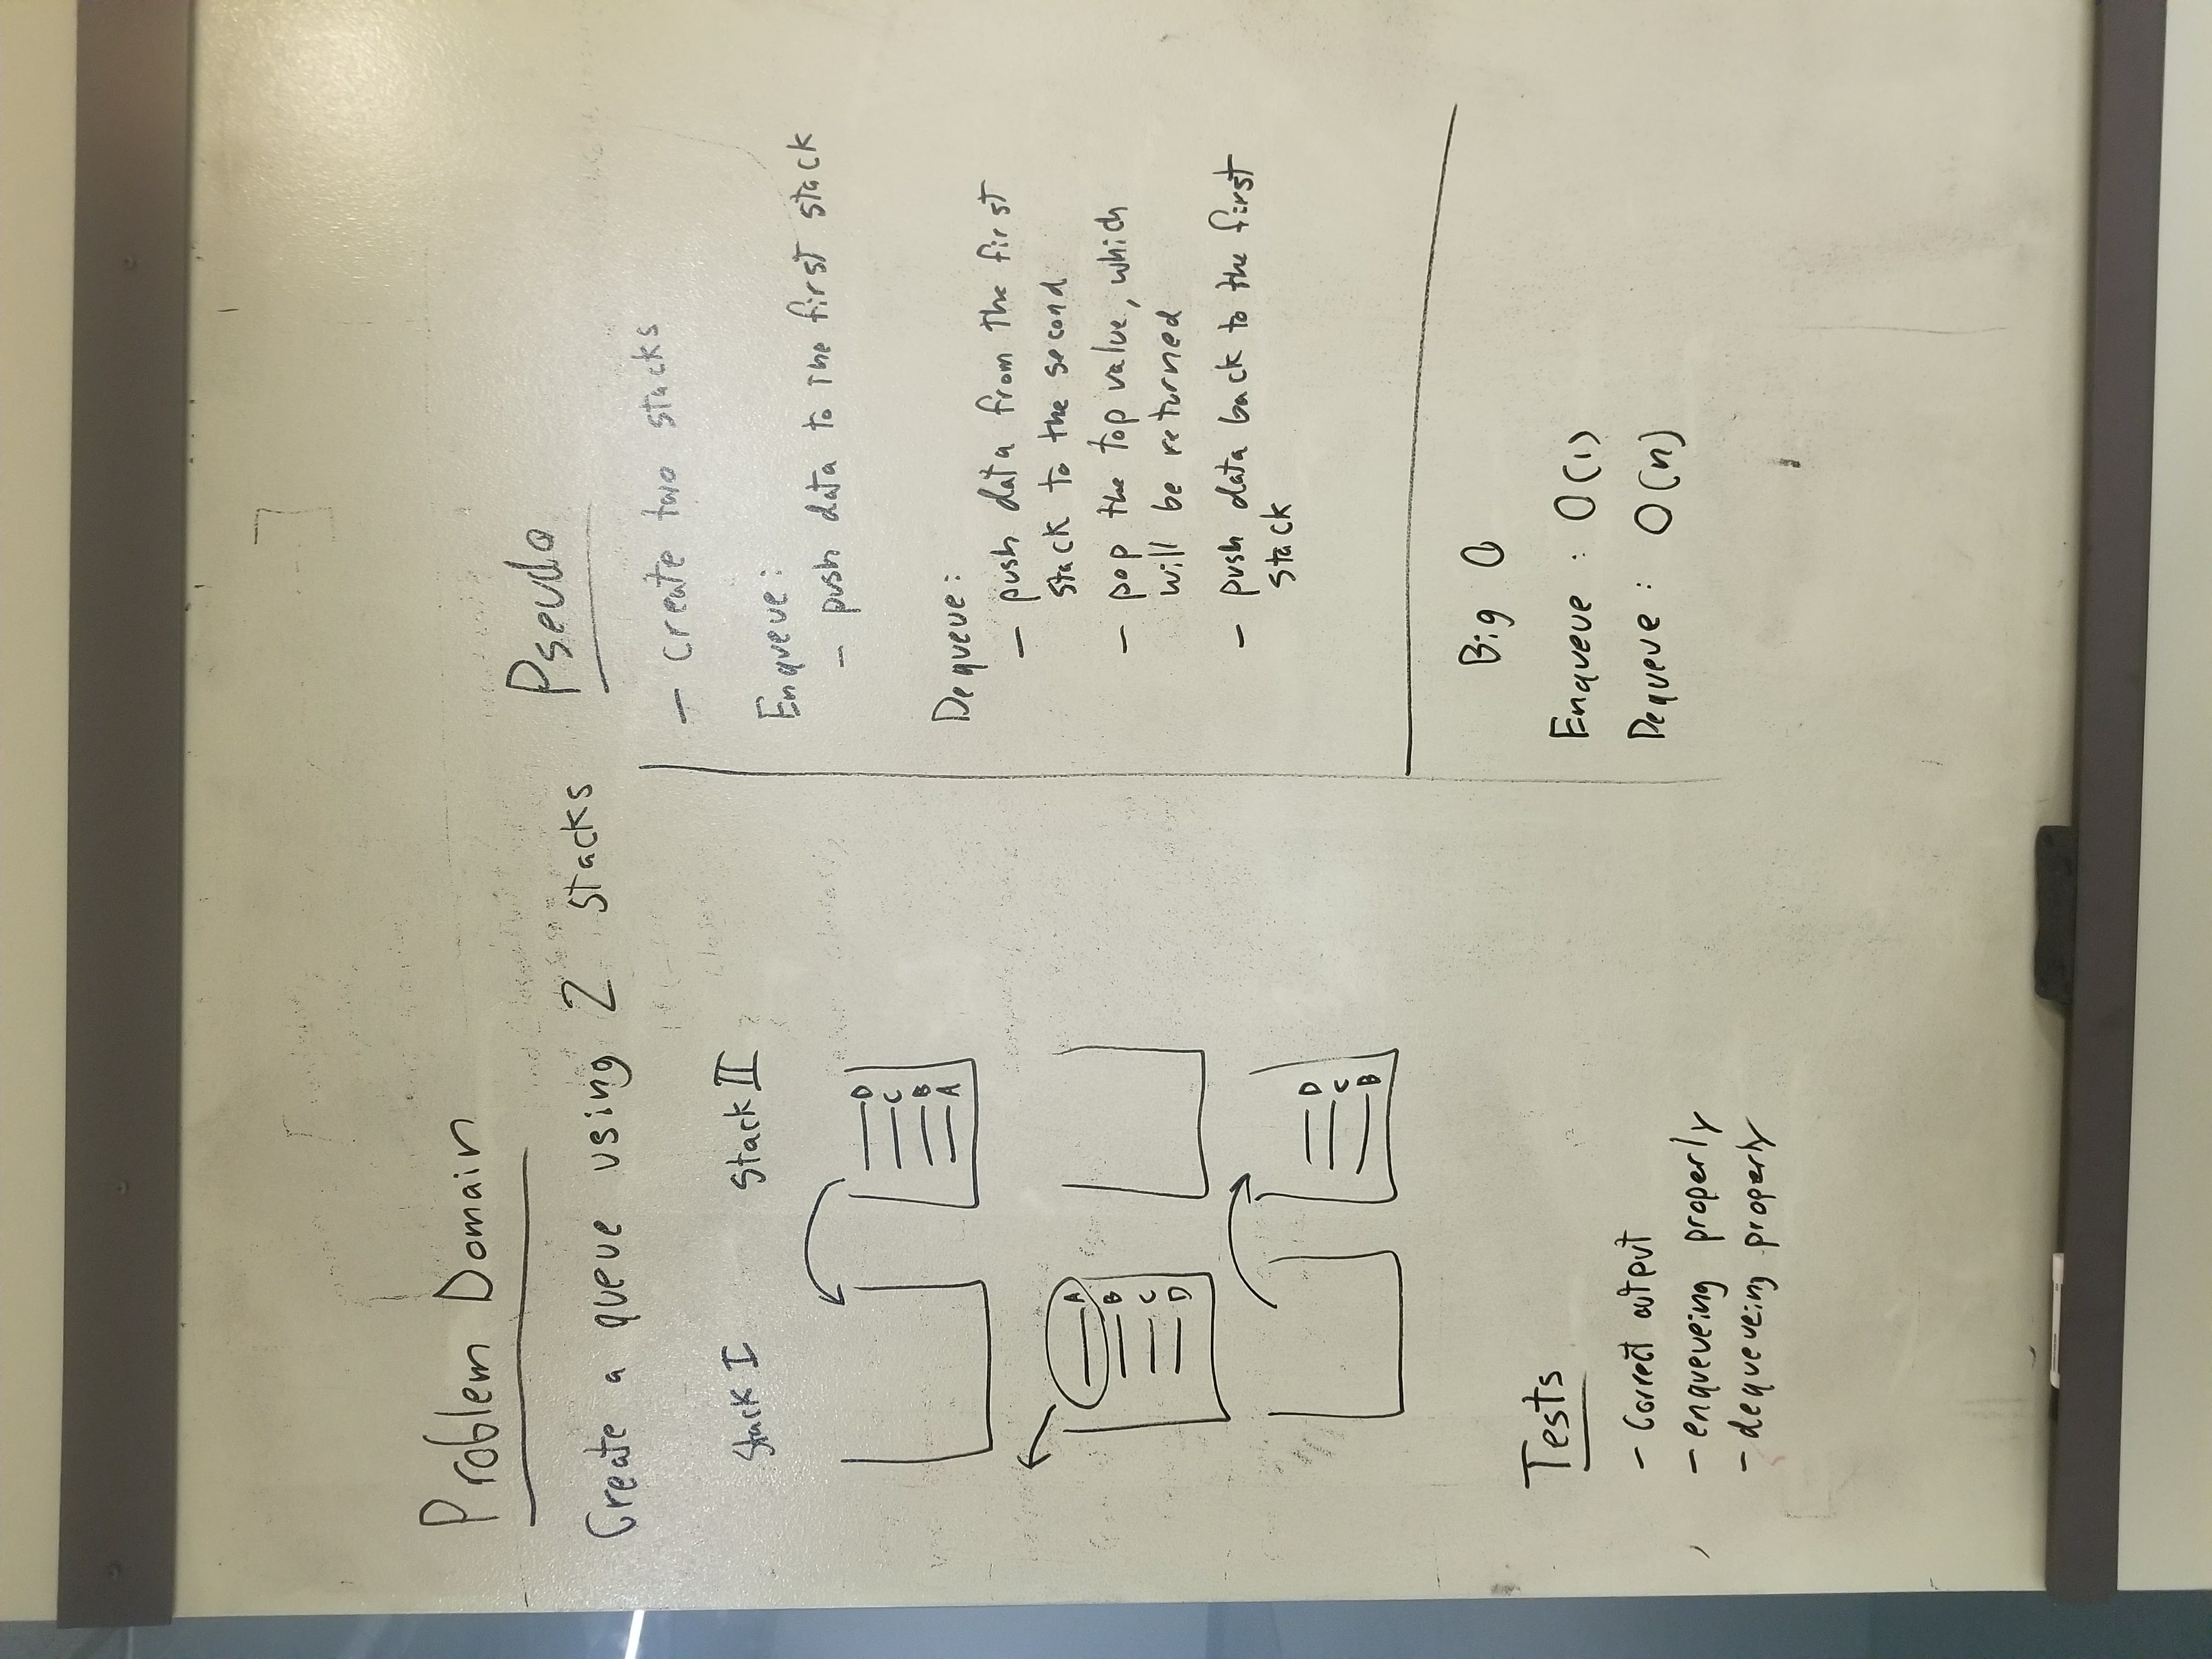 Problem Domain
Create a queue using 2 stacks
Stack I
Stack II
D
C
B
A
A
B
C
D
D
C
B
Tests
- Correct output
- enqueueing properly
- dequeueing properly
Pseudo
- Create two stacks
Enqueue:
- push data to the first stack
Dequeue:
- push data from the first
stack to the second
- pop the top value, which
will be returned
- push data back to the first
stack
Big O
Enqueue : O(1)
Dequeue : O(n)